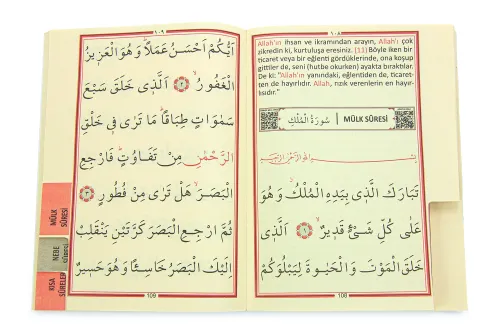 ١٠٨
Allah'ın ihsan ve ikramından arayın, Allah'ı çok
zikredin ki, kurtuluşa eresiniz. (11) Böyle iken bir
ticaret veya bir eğlenti gördüklerinde, ona koşup
gittiler de, seni (hutbe okurken) ayakta bıraktılar.
De ki: "Allah'ın yanındaki, eğlentiden de, ticaret-
ten de hayırlıdır. Allah, rızık verenlerin en hayır-
lısıdır."
سُورَةُ الْمُلْكِ | MÜLK SÛRESİ
بِسْمِ اللّٰهِ الرَّحْمٰنِ الرَّحِيمِ
تَبَارَكَ الَّذ۪ي بِيَدِهِ الْمُلْكُۘ وَهُوَ
عَلٰى كُلِّ شَيْءٍ قَد۪يرٌۙ ﴿١﴾ اَلَّذ۪ي
خَلَقَ الْمَوْتَ وَالْحَيٰوةَ لِيَبْلُوَكُمْ
108
١٠٩
اَيُّكُمْ اَحْسَنُ عَمَلاًۜ وَهُوَ الْعَز۪يزُ
الْغَفُورُۙ ﴿٢﴾ اَلَّذ۪ي خَلَقَ سَبْعَ
سَمٰوَاتٍ طِبَاقاًۜ مَا تَرٰى ف۪ي خَلْقِ
الرَّحْمٰنِ مِنْ تَفَاوُتٍۜ فَارْجِعِ
الْبَصَرَۙ هَلْ تَرٰى مِنْ فُطُورٍ ﴿٣﴾
ثُمَّ ارْجِعِ الْبَصَرَ كَرَّتَيْنِ يَنْقَلِبْ
اِلَيْكَ الْبَصَرُ خَاسِئاً وَهُوَ حَس۪يرٌ
109
MÜLK
SÛRESİ
NEBE
SÛRESİ
KISA
SÛRELER